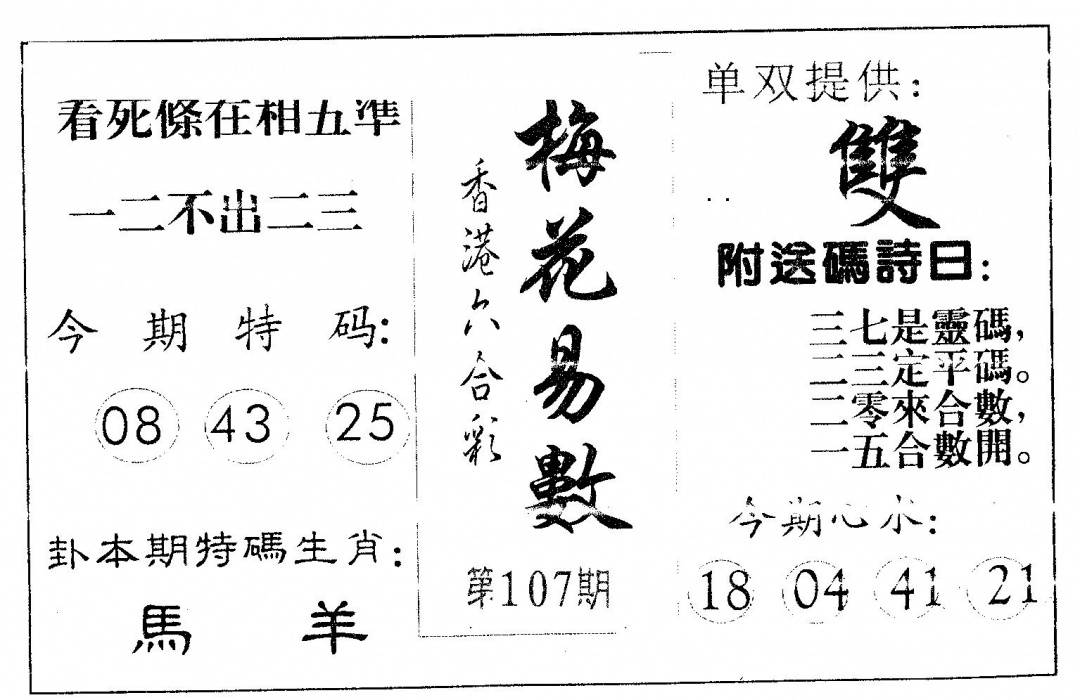 看死條在相五準
一二不出二三
今期特码:
08 43 25
卦本期特碼生肖:
馬 羊
梅花易數
香港六合彩
第107期
单双提供:
雙
附送碼詩曰:
三七是靈碼,
二三定平碼。
二零來合數,
一五合數開。
今期心水:
18 04 41 21